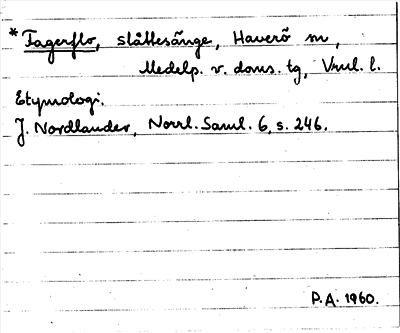 * Fagerflo, slåttesänge, Haverö sn,
Medelp. v. doms. tg, Vrul. l.
Etymologi.
J. Nordlander, Norrl. Saml. 6, s. 246.
P.A. 1960.